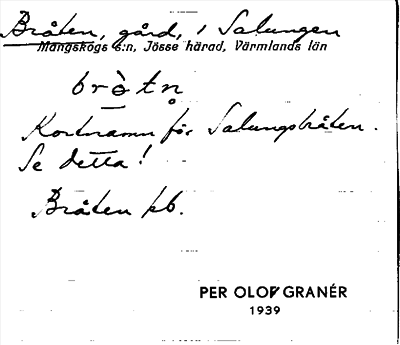 Bråten, gård, i Salungen
Mangskogs s:n, Jösse härad, Värmlands län
bròtn̥
Kortnamn för Salungsbråten.
Se detta!
Bråten kb.
PER OLOF GRANÉR
1939